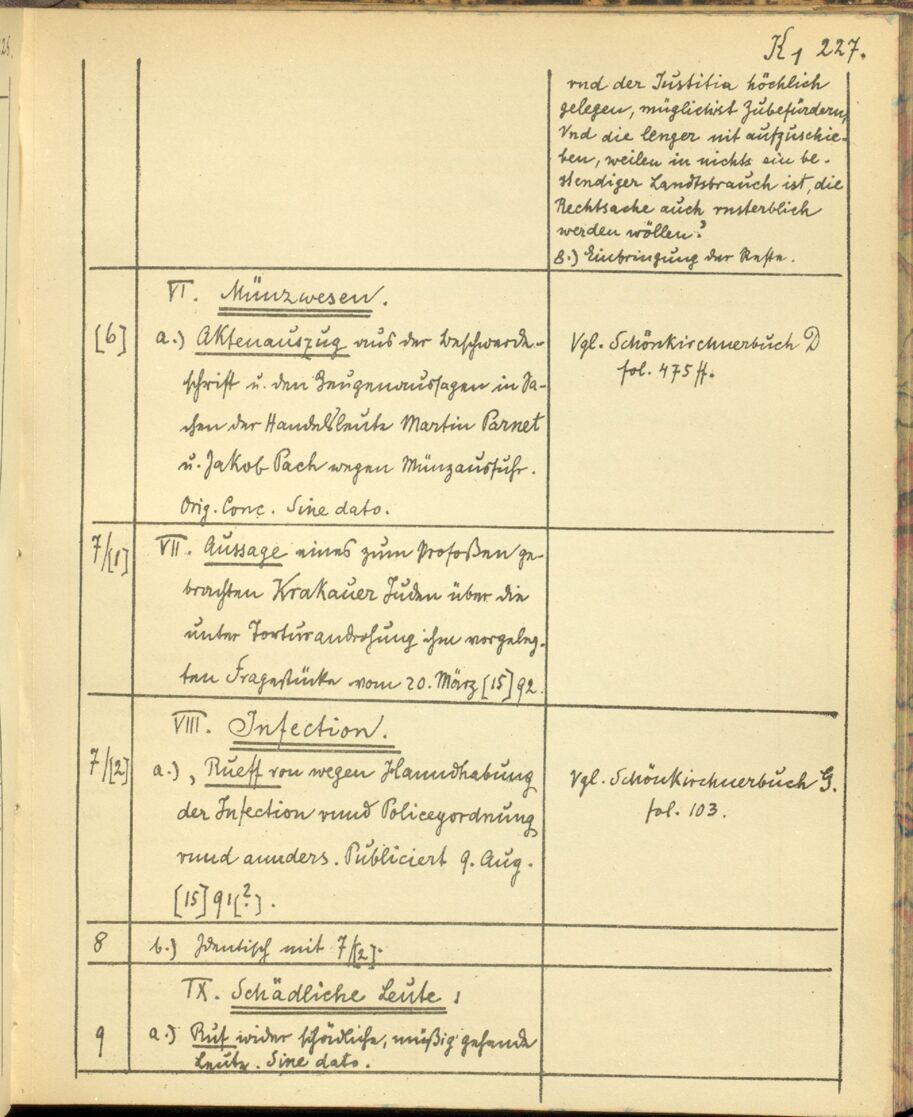 K1 227.
vnd der Iustitia höchlich
gelegen, müglichist Zubefürdern,
Vnd die lenger nit aufzuschie-
ben, weilen in nichts ein be-
stendiger Landtsbrauch ist, die
Rechtsache auch vnsterblich
werden wöllen?
8.) Einbringung der Reste.
VI. Münzwesen.
[6] a.) Aktenauszug aus der Beschwerde-
schrift u. den Zeugenaussagen in Sa-
chen der Handelsleute Martin Parnet
u. Jakob Pach wegen Münzausfuhr.
Orig. Conc. Sine dato.
Vgl. Schönkirchnerbuch D
fol. 475 ff.
7/[1] VII. Aussage eines zum Profoßen ge-
brachten Krakauer Juden über die
unter Torturandrohung ihm vorgeleg-
ten Fragestücke vom 20. März [15]92.
VIII. Infection.
7/[2] a.) , Rueff von wegen Hanndhabung
der Infection vnnd Policeyordnung
vnnd annders. Publiciert 9. Aug.
[15]91[?].
Vgl. Schönkirchnerbuch G.
fol. 103.
8 b.) Identisch mit 7/[2].
IX. Schädliche Leute:
9 a.) Ruf wider schädliche, müßig gehende
Leute. Sine dato.